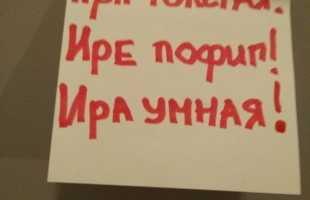 Ире пофиг!
Ира умная!